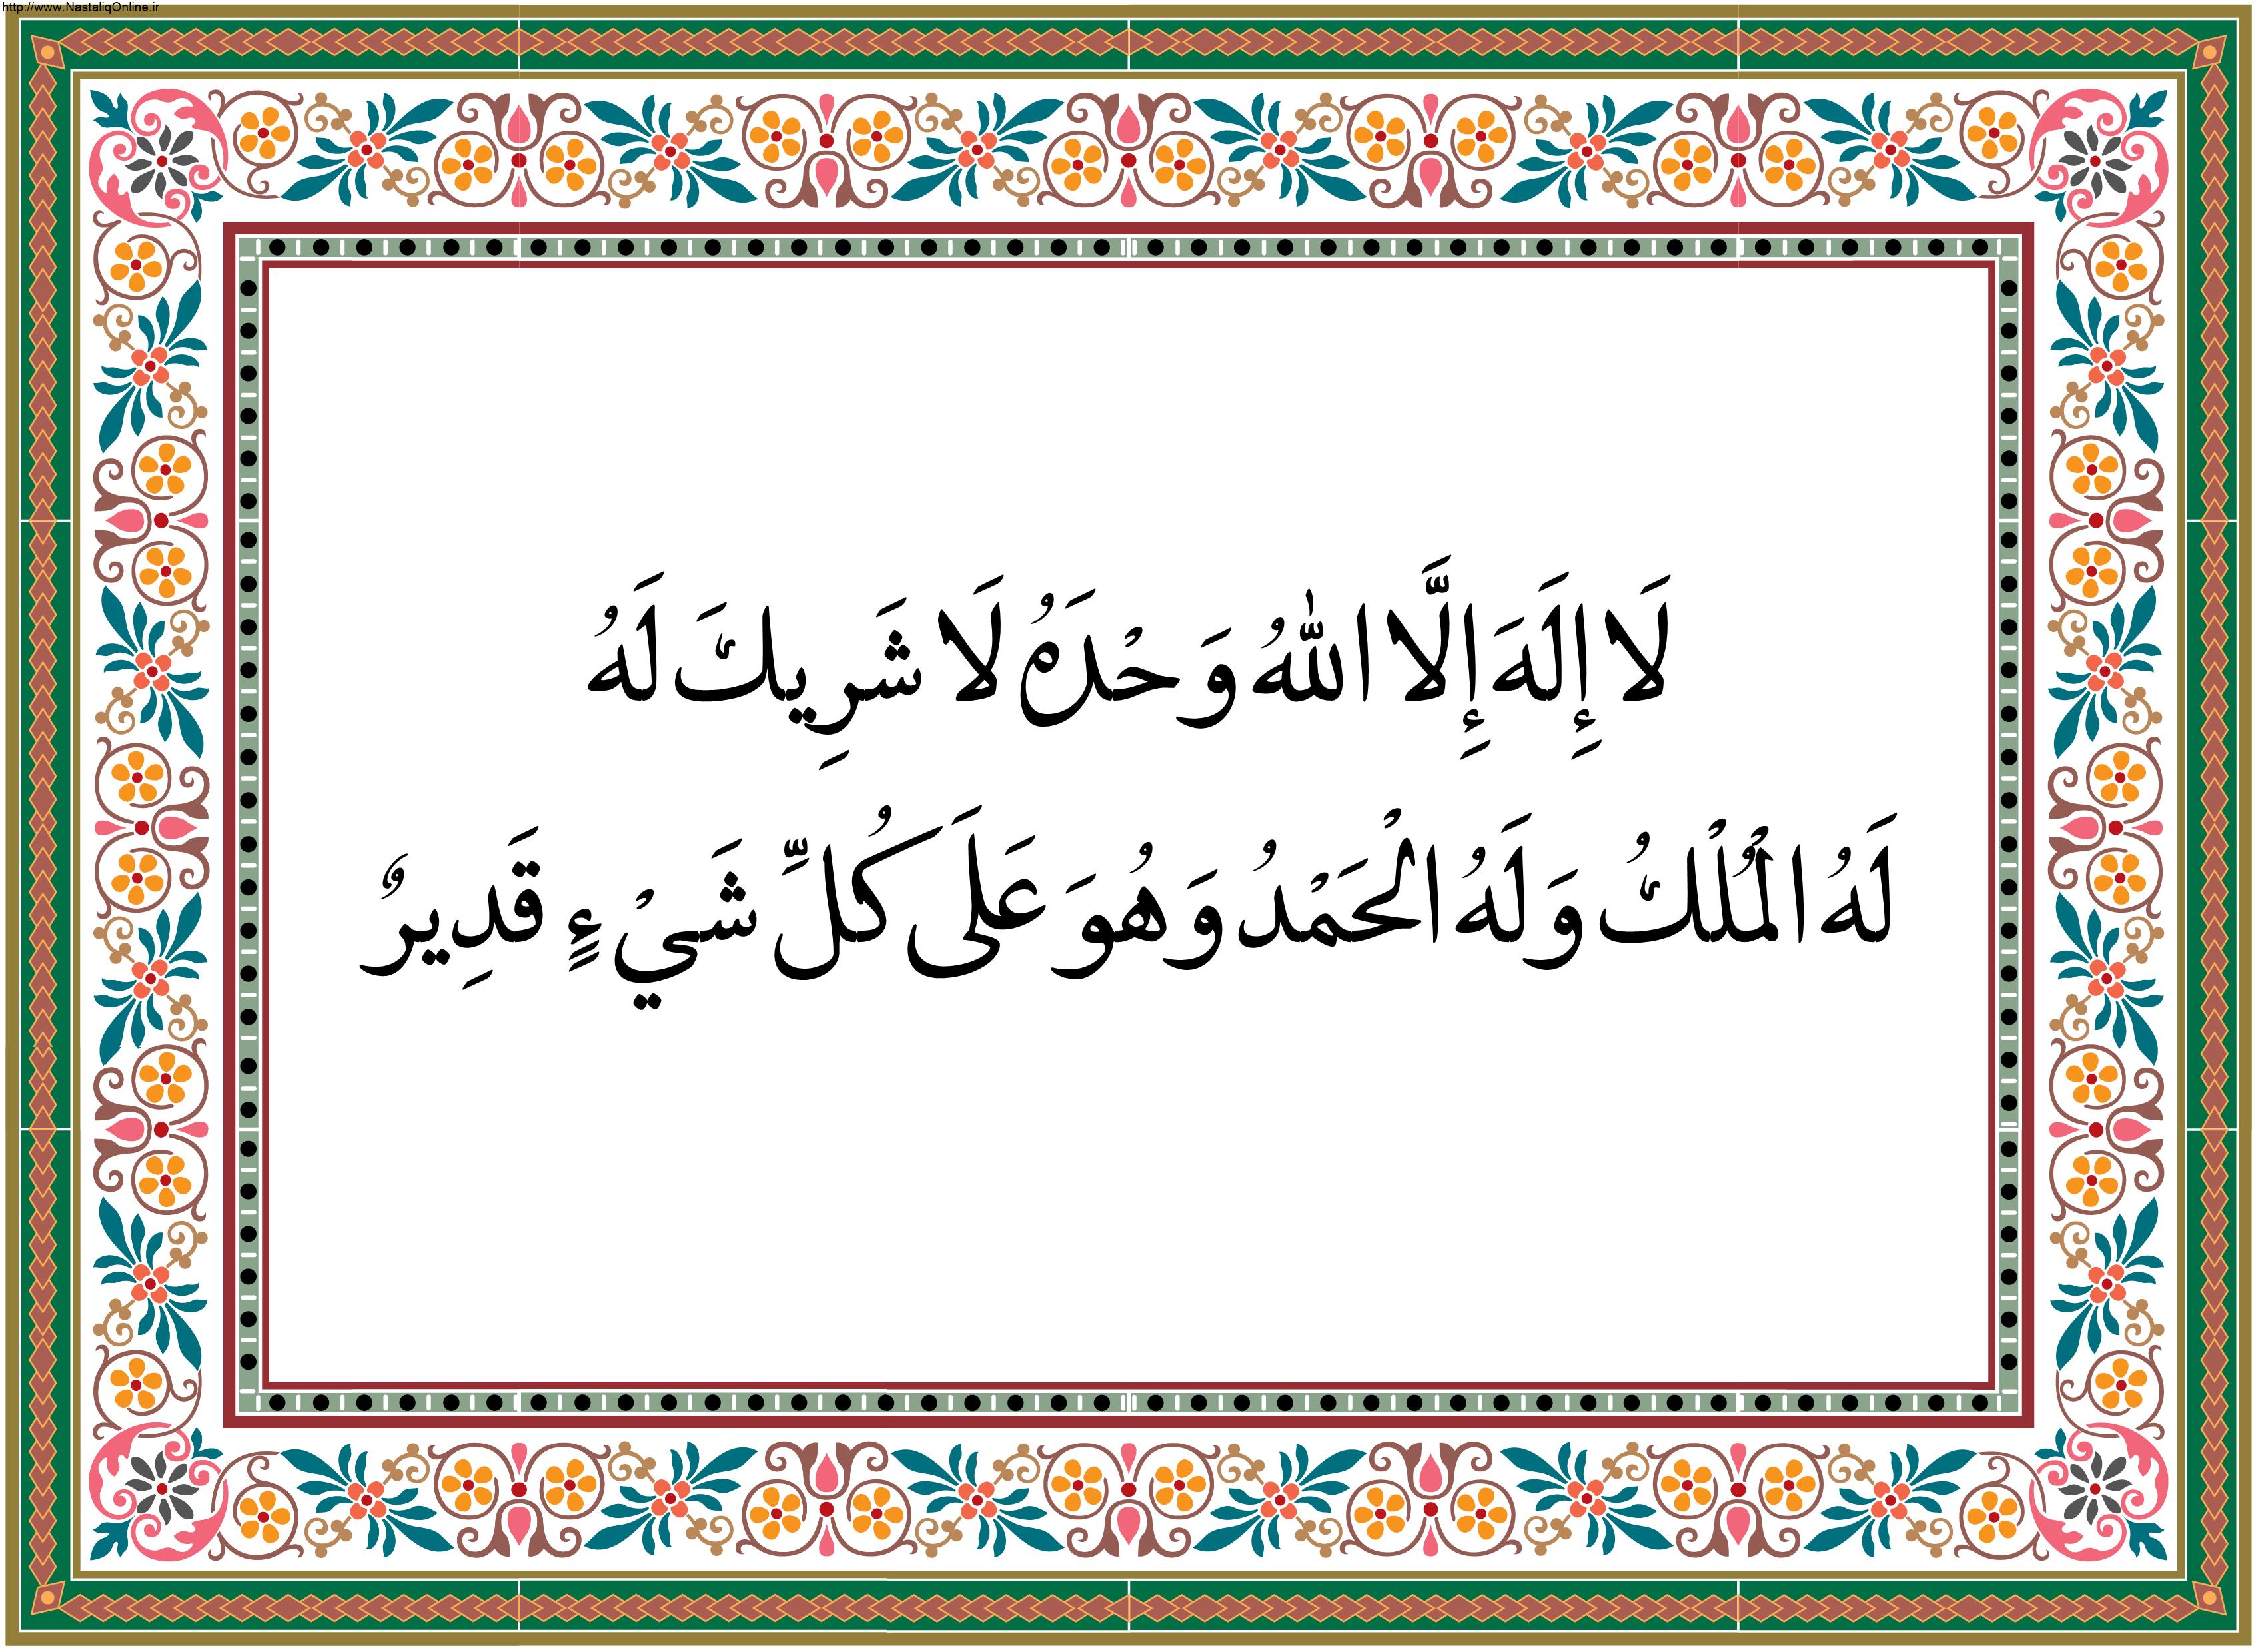 http://www.NastaliqOnline.ir
لَا إِلَهَ إِلَّا اللهُ وَحْدَهُ لَا شَرِيكَ لَهُ
لَهُ الْمُلْكُ وَلَهُ الْحَمْدُ وَهُوَ عَلَى كُلِّ شَيْءٍ قَدِيرٌ